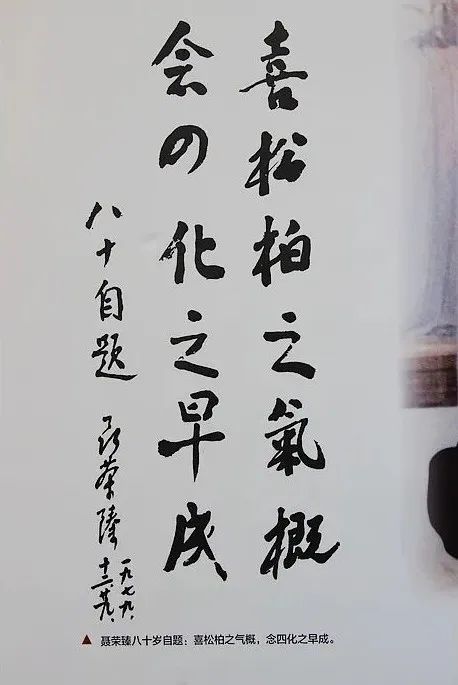 喜松柏之氣概
念四化之早成
八十自题
聂荣臻
一九七九、
十二、廿九、
▲ 聂荣臻八十岁自题：喜松柏之气概，念四化之早成。